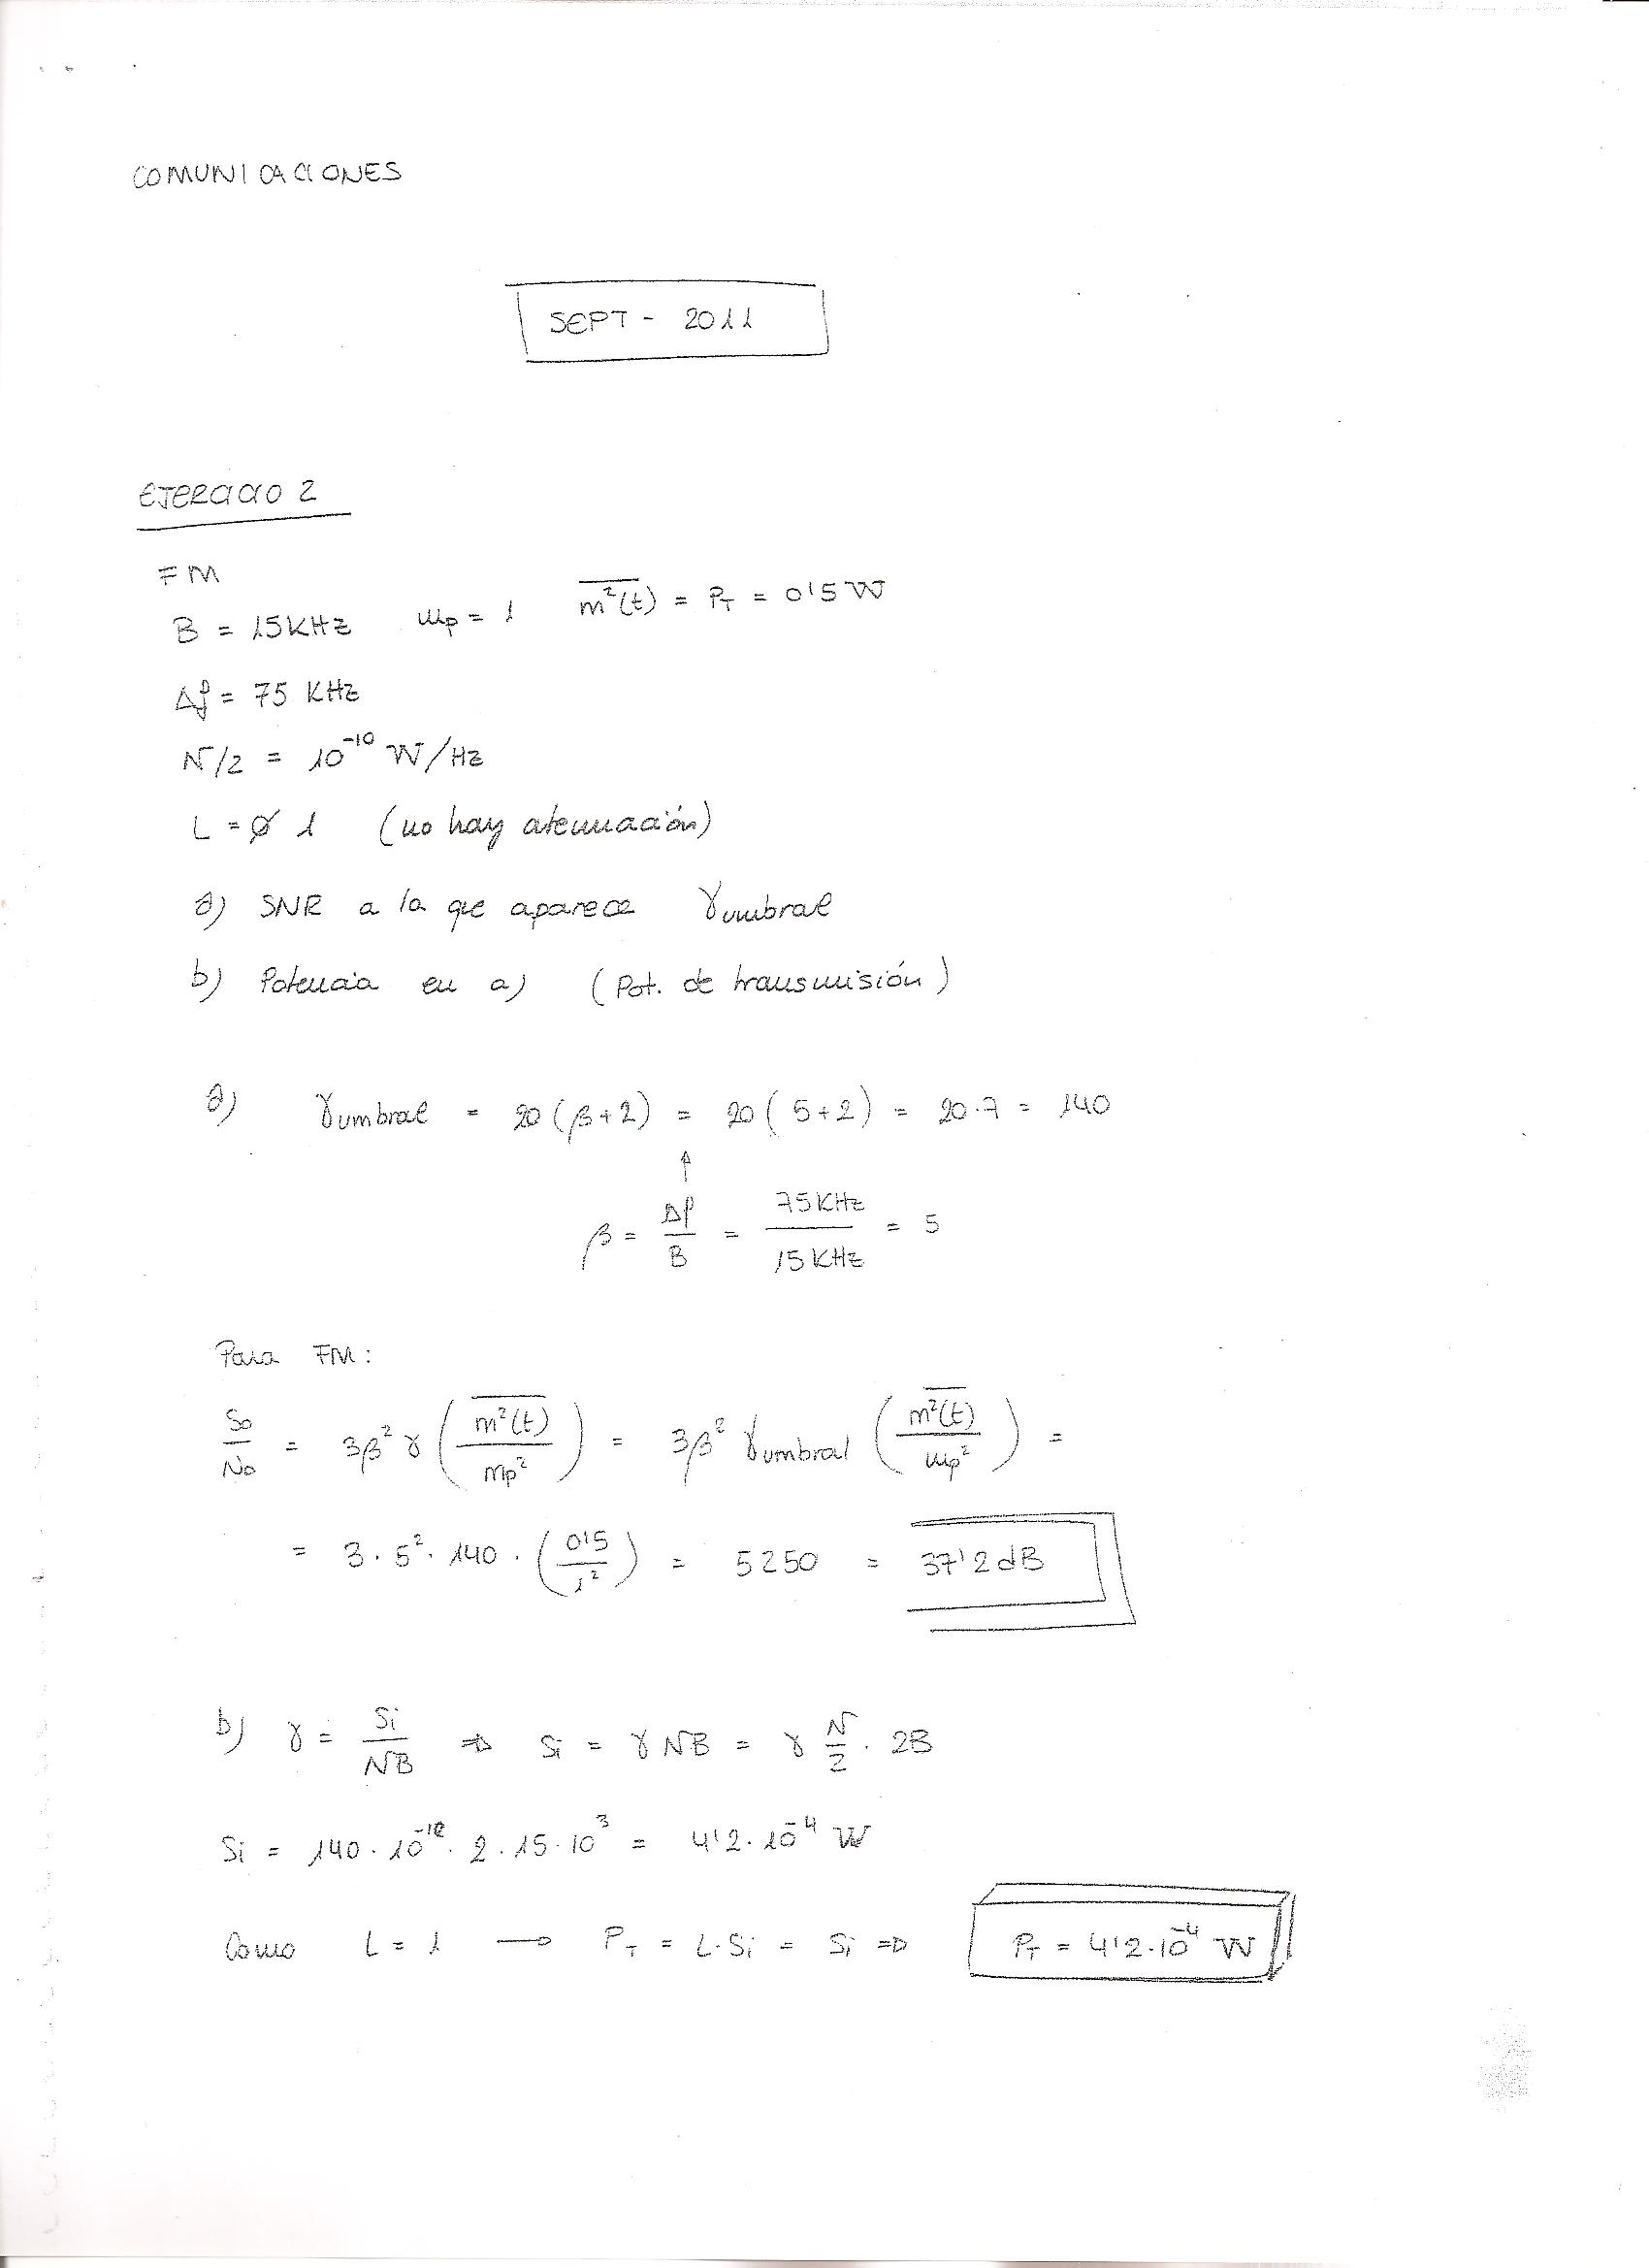 COMUNICACIONES
SEPT - 2011
EJERCICIO 2
FM
B = 15KHz mp = 1 m²(t) = P_T = 0'5 W
Δf = 75 KHz
N/2 = 10⁻¹⁰ W/Hz
L = 1 (no hay atenuación)
a) SNR a la que aparece γumbral
b) Potencia en a) (Pot. de transmisión)
a) γumbral = 20(β+2) = 20(5+2) = 20·7 = 140
↑
β = Δf/B = 75KHz/15KHz = 5
Para FM:
So/No = 3β²γ(m²(t)/mp²) = 3β²γumbral(m²(t)/mp²) =
= 3·5²·140·(0'5/1²) = 5250 = 37'2dB
b) γ = Si/NB ⇒ Si = γNB = γ N/2 · 2B
Si = 140·10⁻¹⁰·2·15·10³ = 4'2·10⁻⁴ W
Como L = 1 → P_T = L·Si = Si ⇒ P_T = 4'2·10⁻⁴ W